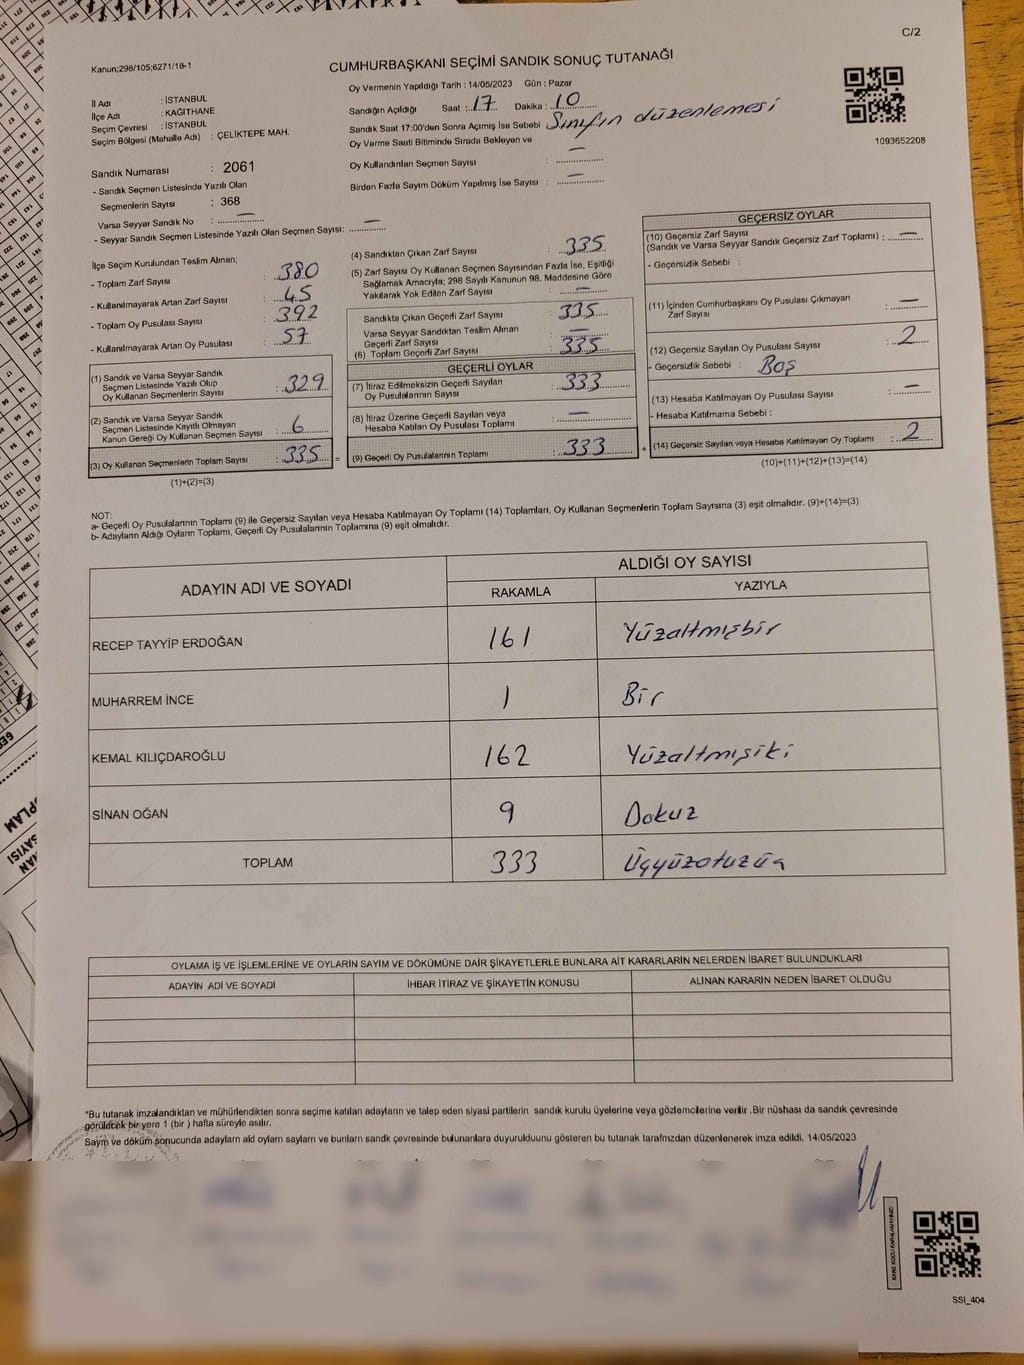 C/2
Kanun;298/105;6271/16-1
CUMHURBAŞKANI SEÇİMİ SANDIK SONUÇ TUTANAĞI
Oy Vermenin Yapıldığı Tarih : 14/05/2023 Gün : Pazar
İl Adı : İSTANBUL
İlçe Adı : KAGITHANE
Seçim Çevresi : İSTANBUL
Seçim Bölgesi (Mahalle Adı) : ÇELİKTEPE MAH.
Sandığın Açıldığı Saat : 17 Dakika : 10
Sandık Saat 17:00'den Sonra Açımış İse Sebebi Sınıfın düzenlemesi
Oy Verme Saati Bitiminde Sırada Bekleyen ve
Oy Kullandırılan Seçmen Sayısı : —
Birden Fazla Sayım Döküm Yapılmış İse Sayısı : —
1093652206
Sandık Numarası : 2061
- Sandık Seçmen Listesinde Yazılı Olan
Seçmenlerin Sayısı : 368
Varsa Seyyar Sandık No : —
- Seyyar Sandık Seçmen Listesinde Yazılı Olan Seçmen Sayısı: —
İlçe Seçim Kurulundan Teslim Alınan;
- Toplam Zarf Sayısı : 380
- Kullanılmayarak Artan Zarf Sayısı : 45
- Toplam Oy Pusulası Sayısı : 392
- Kullanılmayarak Artan Oy Pusulası : 57
(1) Sandık ve Varsa Seyyar Sandık
Seçmen Listesinde Yazılı Olup
Oy Kullanan Seçmenlerin Sayısı : 329
(2) Sandık ve Varsa Seyyar Sandık
Seçmen Listesinde Kayıtlı Olmayan
Kanun Gereği Oy Kullanan Seçmen Sayısı : 6
(3) Oy Kullanan Seçmenlerin Toplam Sayısı : 335 =
(1)+(2)=(3)
(4) Sandıktan Çıkan Zarf Sayısı : 335
(5) Zarf Sayısı Oy Kullanan Seçmen Sayısından Fazla İse, Eşitliği
Sağlamak Amacıyla; 298 Sayılı Kanunun 98. Maddesine Göre
Yakılarak Yok Edilen Zarf Sayısı : —
Sandıkta Çıkan Geçerli Zarf Sayısı : 335
Varsa Seyyar Sandıktan Teslim Alınan
Geçerli Zarf Sayısı : —
(6) Toplam Geçerli Zarf Sayısı : 335
GEÇERLİ OYLAR
(7) İtiraz Edilmeksizin Geçerli Sayılan
Oy Pusulasının Sayısı : 333
(8) İtiraz Üzerine Geçerli Sayılan veya
Hesaba Katılan Oy Pusulası Toplamı : —
(9) Geçerli Oy Pusulalarının Toplamı : 333 +
GEÇERSİZ OYLAR
(10) Geçersiz Zarf Sayısı
(Sandık ve Varsa Seyyar Sandık Geçersiz Zarf Toplamı) : —
- Geçersizlik Sebebi :
(11) İçinden Cumhurbaşkanı Oy Pusulası Çıkmayan
Zarf Sayısı : —
(12) Geçersiz Sayılan Oy Pusulası Sayısı : 2
- Geçersizlik Sebebi : Boş
(13) Hesaba Katılmayan Oy Pusulası Sayısı : —
- Hesaba Katılmama Sebebi :
(14) Geçersiz Sayılan veya Hesaba Katılmayan Oy Toplamı : 2
(10)+(11)+(12)+(13)=(14)
NOT:
a- Geçerli Oy Pusulalarının Toplamı (9) ile Geçersiz Sayılan veya Hesaba Katılmayan Oy Toplamı (14) Toplamları, Oy Kullanan Seçmenlerin Toplam Sayısına (3) eşit olmalıdır. (9)+(14)=(3)
b- Adayların Aldığı Oyların Toplamı, Geçerli Oy Pusulalarının Toplamına (9) eşit olmalıdır.
ADAYIN ADI VE SOYADI
ALDIĞI OY SAYISI
RAKAMLA YAZIYLA
RECEP TAYYİP ERDOĞAN 161 Yüzaltmışbir
MUHARREM İNCE 1 Bir
KEMAL KILIÇDAROĞLU 162 Yüzaltmışiki
SİNAN OĞAN 9 Dokuz
TOPLAM 333 Üçyüzotuzüç
OYLAMA İŞ VE İŞLEMLERİNE VE OYLARIN SAYIM VE DÖKÜMÜNE DAİR ŞİKAYETLERLE BUNLARA AİT KARARLARIN NELERDEN İBARET BULUNDUKLARI
ADAYIN ADI VE SOYADI İHBAR İTİRAZ VE ŞİKAYETİN KONUSU ALINAN KARARIN NEDEN İBARET OLDUĞU
*Bu tutanak imzalandıktan ve mühürlendikten sonra seçime katılan adayların ve talep eden siyasi partilerin sandık kurulu üyelerine veya gözlemcilerine verilir .Bir nüshası da sandık çevresinde
görülecek bir yere 1 (bir ) hafta süreyle asılır.
Sayım ve döküm sonucunda adayların ald oyların sayların ve bunların sandk çevresinde bulunanlara duyurulduunu gösteren bu tutanak tarafmzdan düzenlenerek imza edildi. 14/05/2023
SSI_404